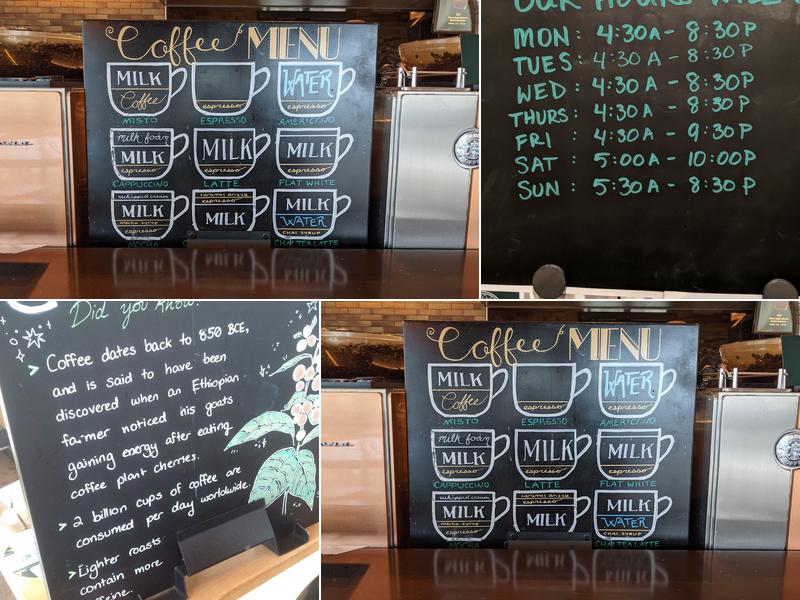 Coffee MENU
MILK
Coffee
MISTO
espresso
ESPRESSO
WATER
espresso
AMERICANO
milk foam
MILK
espresso
CAPPUCCINO
MILK
espresso
LATTE
MILK
espresso
FLAT WHITE
whipped cream
MILK
mocha syrup
espresso
MOCHA
caramel drizzle
espresso
MILK
MILK
WATER
CHAI SYRUP
CHAI TEA LATTE
OUR HOURS
MON: 4:30A - 8:30P
TUES: 4:30A - 8:30P
WED: 4:30A - 8:30P
THURS: 4:30A - 8:30P
FRI: 4:30A - 9:30P
SAT: 5:00A - 10:00P
SUN: 5:30A - 8:30P
Did you know?
> Coffee dates back to 850 BCE,
and is said to have been
discovered when an Ethiopian
farmer noticed his goats
gaining energy after eating
coffee plant cherries.
> 2 billion cups of coffee are
consumed per day worldwide.
> Lighter roasts
contain more
caffeine.
Coffee MENU
MILK
Coffee
MISTO
espresso
ESPRESSO
WATER
espresso
AMERICANO
milk foam
MILK
espresso
CAPPUCCINO
MILK
espresso
LATTE
MILK
espresso
FLAT WHITE
whipped cream
MILK
mocha syrup
espresso
MOCHA
caramel drizzle
espresso
MILK
MILK
WATER
CHAI SYRUP
CHAI TEA LATTE